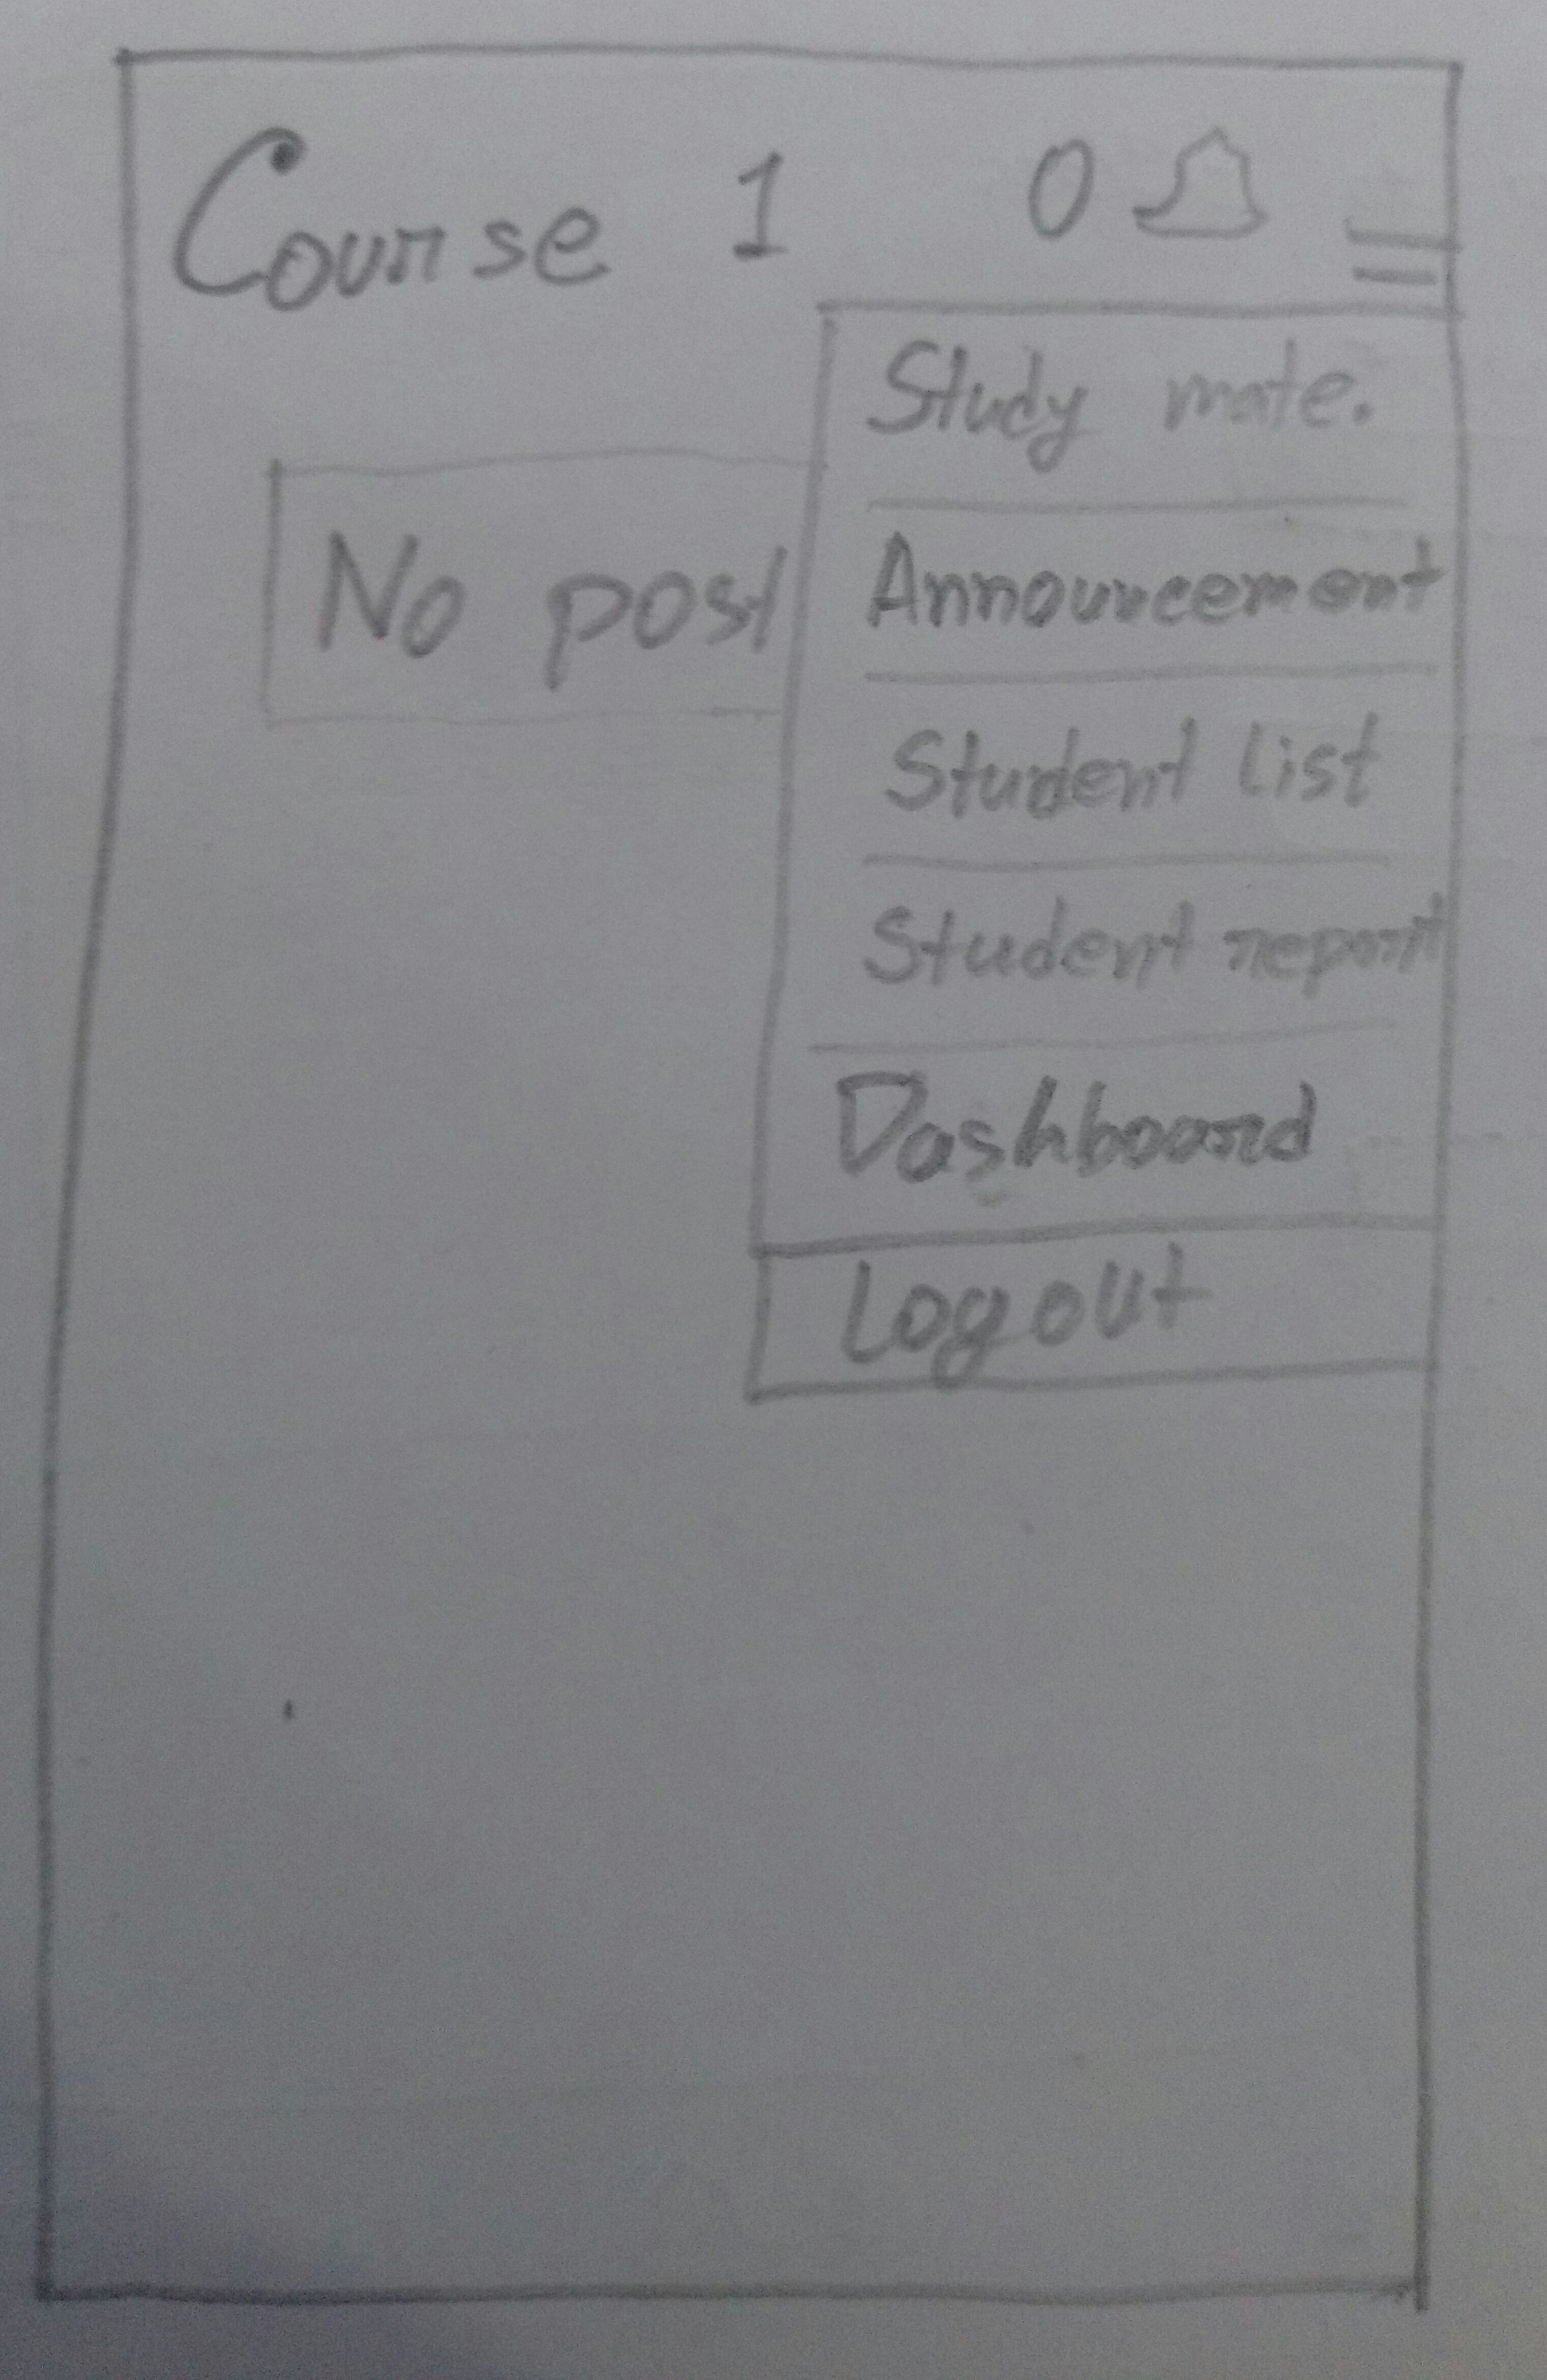 Course 1 0
Study mate.
No post
Announcement
Student list
Student report
Dashboard
Log out